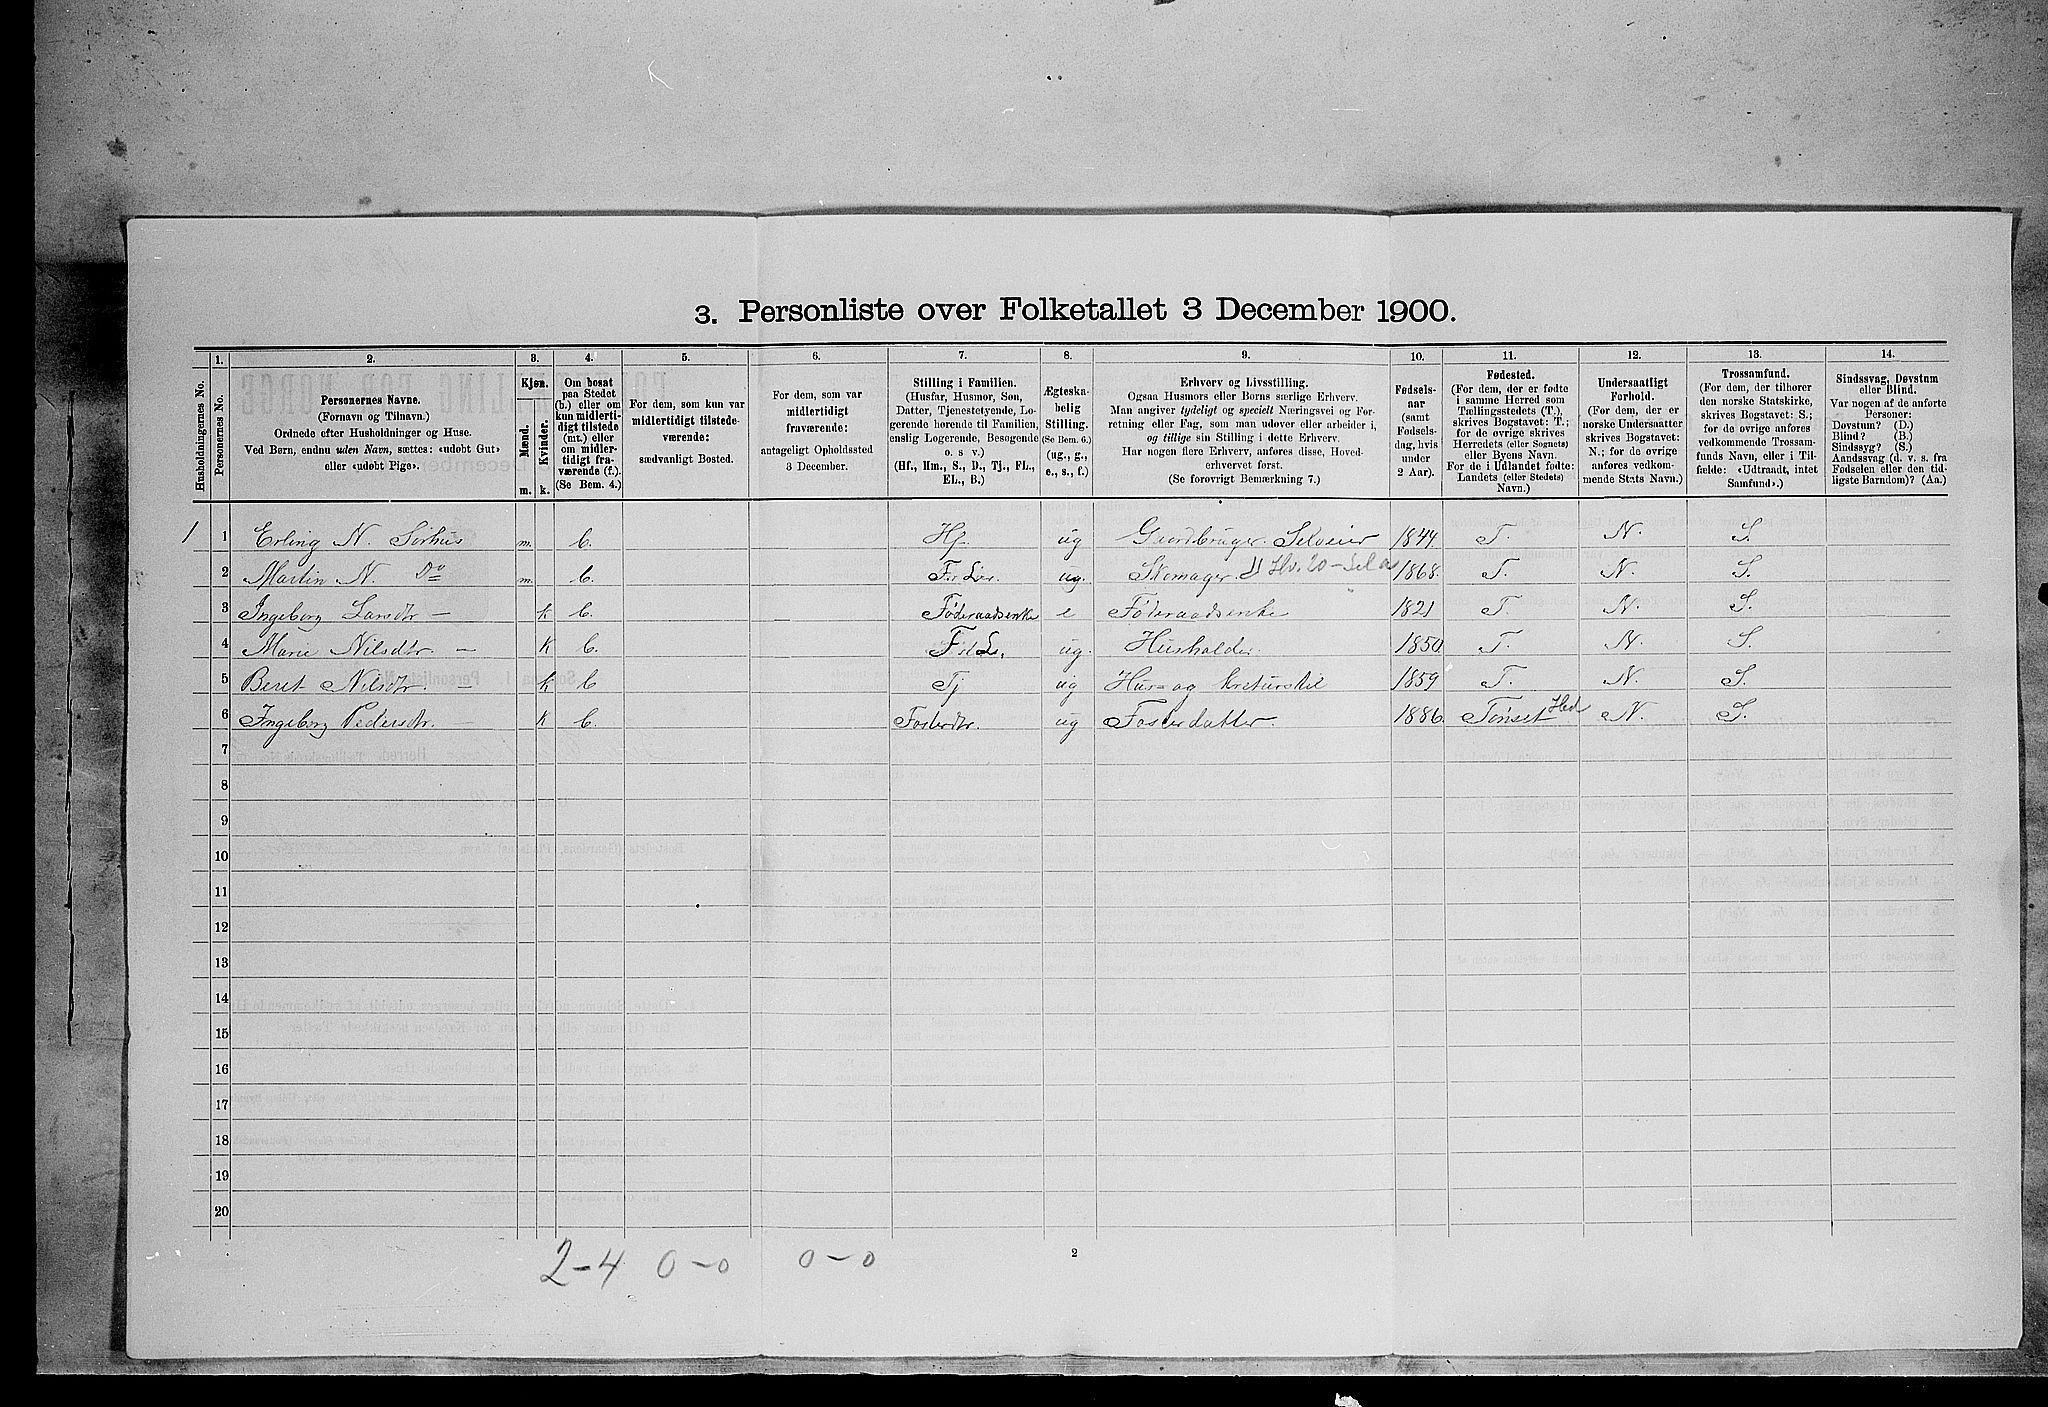 3. Personliste over Folketallet 3 December 1900.
Husholdningernes No.
1.
Personernes No.
2.
Personernes Navne.
(Fornavn og Tilnavn.)
Ordnede efter Husholdninger og Huse.
Ved Børn, endnu uden Navn, sættes: «udøbt Gut»
eller «udøbt Pige».
3.
Kjøn.
Mænd.
Kvinder.
m.
k.
4.
Om bosat
paa Stedet
(b.) eller om
kun midlerti-
digt tilstede
(mt.) eller
om midler-
tidigt fra-
værende (f.).
(Se Bem. 4.)
5.
For dem, som kun var
midlertidigt tilstede-
værende:
sædvanligt Bosted.
6.
For dem, som var
midlertidigt
fraværende:
antageligt Opholdssted
3 December.
7.
Stilling i Familien.
(Husfar, Husmor, Søn,
Datter, Tjenestetyende, Lo-
gerende hørende til Familien,
enslig Logerende, Besøgende
o. s v.)
(Hf., Hm., S., D., Tj., FL.,
EL., B.)
8.
Ægteska-
belig
Stilling.
(Se Bem. 6.)
(ug., g.,
e., s., f.)
9.
Erhverv og Livsstilling.
Ogsaa Husmors eller Børns særlige Erhverv.
Man angiver tydeligt og specielt Næringsvei og For-
retning eller Fag, som man udøver eller arbeider i,
og tillige sin Stilling i dette Erhverv.
Har nogen flere Erhverv, anføres disse, Hoved-
erhvervet først.
(Se forøvrigt Bemærkning 7.)
10.
Fødsels-
aar
(samt
Fødsels-
dag, hvis
under
2 Aar).
11.
Fødested.
(For dem, der er fødte
i samme Herred som
Tællingsstedets (T.),
skrives Bogstavet: T.;
for de øvrige skrives
Herredets (eller Sognets)
eller Byens Navn.
For de i Udlandet fødte:
Landets (eller Stedets)
Navn.)
12.
Undersaatligt
Forhold.
(For dem, der er
norske Undersaatter
skrives Bogstavet:
N.; for de øvrige
anføres vedkom-
mende Stats Navn.)
13.
Trossamfund.
(For dem, der tilhører
den norske Statskirke,
skrives Bogstavet: S.;
for de øvrige anføres
vedkommende Trossam-
funds Navn, eller i Til-
fælde: «Udtraadt, intet
Samfund».)
14.
Sindssvag, Døvstum
eller Blind.
Var nogen af de anførte
Personer:
Døvstum? (D.)
Blind? (B.)
Sindssyg? (S.)
Aandssvag (d. v. s. fra
Fødselen eller den tid-
ligste Barndom)? (Aa.)
1 1 Erling N. Sørhus m. b. Hf. ug Gaardbruger. Selveier 1844. T. N. S.
2 Martin N. Do m. b. ug. Skomager 1868. T. N. S.
3 Ingeborg Larsdtr — k b. Føderaadsenke e Føderaadsenke 1821 T. N. S.
4 Marie Nilsdtr. — k b. ug. Husholder. 1850 T. N. S.
5 Beret Nilsdtr. — k b Tj ug Hus- og kreturstel 1859 T. N. S.
6 Ingeborg Pedersdtr. — k b. Fosterdtr. ug Fosterdatter. 1886. Tønset Hed N. S.
7
8
9
10
11
12
13
14
15
16
17
18
19
20
2-4 0-0 0-0
2